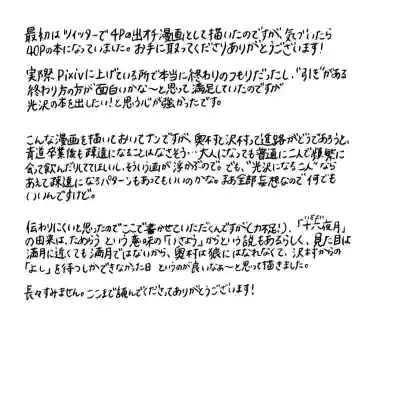 最初はツイッターで4Pの出す予漫画として描いたのですが、気づいたら
40Pの本になっていました。お手に取ってくださりありがとうございます!
実際Pixivに上げている所で本当に終わりのつもりだったし、"引き"がある
終わり方の方が面白いかな〜と思って満足していたのですが
光沢の本を出したい!と思う心が強かったです。
こんな漫画を描いておいてナンですが、奥村と沢村って進路がどうであろうと、
青道卒業後も疎遠になることはなさそう…大人になっても普通に二人で頻繁に
会って飲んだりしててほしいし、そういう画が浮かぶので。でも、"光沢になる二人"なら
あえて疎遠になるパターンもあってもいいのかな。まあ全部妄想なので何でも
いいんですけど。
伝わりにくいと思ったのでここで書かせていただくんですが(力不足!)、「十六夜月」
いざよい
の由来は、ためらうという意味の「いさよう」からという説もあるらしく、見た目は
満月に近くても満月ではないから、奥村は狼にはなれなくて、沢村からの
「よし」を待つしかできなかった日 というのが良いなぁ〜と思って描きました。
長々すみません。ここまで読んでくださってありがとうございます!